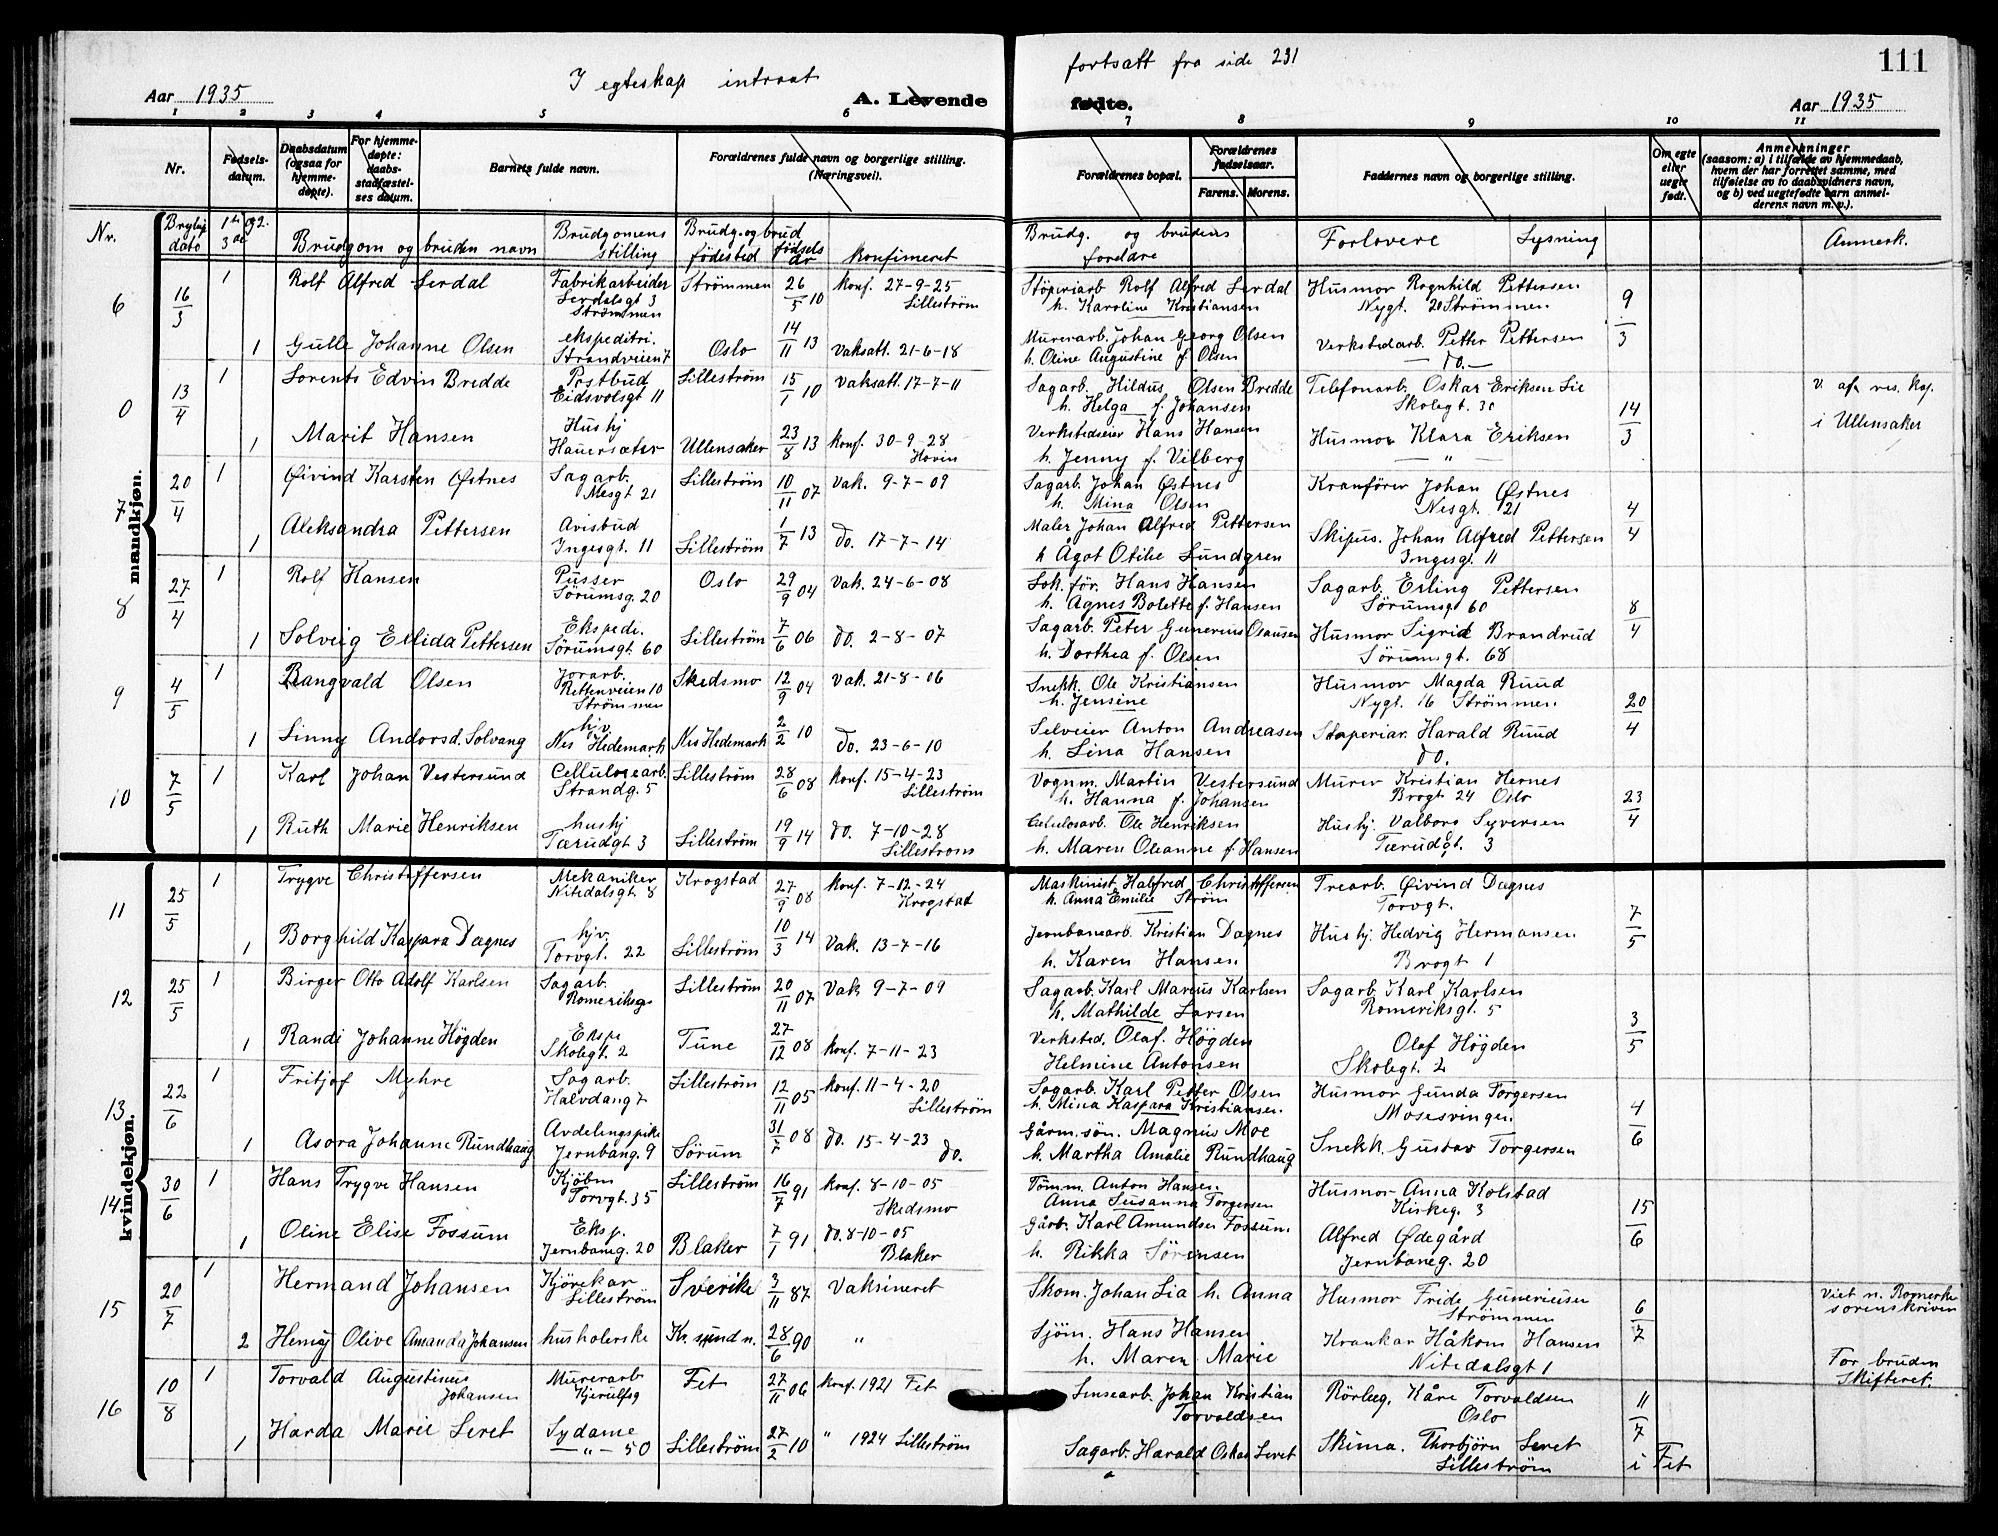 111
Aar 1935
I egteskap intraat
A. Levende
fortsatt fra side 231
fødte.
Aar 1935
1 2 3 4 5 6 7 8 9 10 11
Nr.
Fødsels-
datum.
Daabsdatum
(ogsaa for
hjemme-
døpte).
For hjemme-
døpte:
daabs-
stadfæstel-
ses datum.
Barnets fulde navn.
Forældrenes fulde navn og borgerlige stilling.
(Næringsvei).
Forældrenes bopæl.
Forældrenes
fødselsaar.
Farens. Morens.
Faddernes navn og borgerlige stilling.
Om egte
eller
uegte
født.
Anmerkninger
(saasom: a) i tilfælde av hjemmedaab,
hvem der har forrettet samme, med
tilføielse av to daabsvidners navn,
og b) ved uegtefødte barn anmel-
derens navn m. v.).
Nr.
dato
Brudgom og bruden navn
Brudgomens
stilling
Brudg. og brud
fødested
fødsels
år
Konfimeret
Brudg. og brudens
fordare
Forlovere
Lysning
Anmerk.
mandkjøn.
6
16/3
1 Rolf Alfred Serdal Fabrikarbeider Strömmen 26/5 10 Konf. 27-9-25
Serdalsgt 3
Strömmen
Lilleström
Stöperiarb Rolf Alfred Serdal
h. Karoline Kristiansen
Husmor Ragnhild Pettersen
Nygt. 20 Strömmen
9/3
1 Gulle Johanne Olsen ekspeditri. Oslo 14/11 13 Vaksatt. 21-6-18
Strandveien 7
Murerarb. Johan Georg Olsen
h. Oline Augustine f Olsen
Verkstedarb. Petter Pettersen
— do. —
0
13/4
1 Lorents Edvin Bredde Postbud Lilleström 15/1 10 Vaksatt. 17-7-11
Eidsvolsgt 11
Sagarb. Hildus Olsen Bredde
h. Helga f. Johansen
Telefonarb. Oskar Eriksen Lie
Skolegt. 30
14/3
v. afa res. kap.
i Ullensaker
1 Marit Hansen Hushj Ullensaker 23/8 13 Konf. 30-9-28
Hauersæter
Hovin
Verkstedeier Hans Hansen
h. Jenny f. Vilberg
Husmor Klara Eriksen
— " —
7
20/4
1 Øivind Karsten Østnes Sagarb. Lilleström 10/11 07 Vak. 9-7-09
Nesgt 21
Sagarb. Johan Østnes
h. Mina Olsen
Kranförer Johan Østnes
Nesgt. 21
4/4
1 Aleksandra Pettersen Avisbud Lilleström 1/7 13 do. 17-7-14
Ingesgt. 11
Maler Johan Alfred Pettersen
h Ågot Otilie Lundgren
Skipus. Johan Alfred Pettersen
Ingesg. 11
8
27/4
1 Rolf Hansen Pusser Oslo 29/9 04 Vak. 24-6-08
Sörumsg. 20
Lok. för. Hans Hansen
h. Agnes Bolette f. Hansen
Sagarb. Erling Pettersen
Sörumsgt 60
8/4
1 Solveig Ellida Pettersen Ekspedi. Lilleström 7/6 06 do. 2-8-07
Sörumsgt. 60
Sagarb. Peter Gunerius Osausen
h. Dorthea f. Olsen
Husmor Sigrid Brandrud
Sörumsgt. 68
9
4/5
1 Rangvald Olsen Jorarb. Skedsmo 12/9 04 Vak. 21-8-06
Rettenveien 10
Strömmen
Snekk. Ole Kristiansen
h. Jensine
Husmor Magda Ruud
Nygt. 16 Strömmen.
20/4
1 Linny Andorsd. Solvang hjv Nes Hedemark 2/2 10 do. 23-6-10
Nes Hedemark
Selveier Anton Andreasen
h. Lina Hansen
Støperiar. Harald Ruud
do.
10
7/5
1 Karl Johan Vestersund Cellulosearb. Lilleström 28/6 08 Konf. 15-4-23
Strandg. 5
Lilleström
Vognm. Martin Vestersund
h. Hanna f. Johansen
Murer Kristian Hernes
Brogt 24 Oslo
23/4
1 Ruth Marie Henriksen hushj Lilleström 19/9 14 do. 7-10-28
Tærudgt 3
Lilleström
Celulosarb. Ole Henriksen
h. Maren Oleanne f. Hansen
Hushj. Valborg Syversen
Tærudgt. 3
kvindekjøn.
11
25/5
1 Trygve Christoffersen Mekaniker Krogstad 27/9 08 Konf. 7-12-24
Nitedalsgt 8
Krogstad
Maskinist Halfred Christoffersen
h. Anna Emilie Ström
Trearb. Øivind Dagnes
Torvgt.
7/5
1 Borghild Kaspara Dagnes hjv. Lilleström 10/3 14 Vak. 13-7-16
Torvgt. 22
Jernbanearb. Kristian Dagnes
h. Karen Hansen
Hushj. Hedvig Hermansen
Brogt 1
12
25/5
1 Birger Otto Adolf Karlsen Sagarb. Lilleström 20/11 07 Vak 9-7-09
Romeriksg
Sagarb. Karl Marius Karlsen
h. Mathilde Larsen
Sagarb. Karl Karlsen
Romeriksgt. 5
3/5
1 Randi Johanne Högden Ekspe Tune 27/12 08 Konf. 7-11-23
Skolegt. 2
Verksted. Olaf. Högden
Helmine Antonsen
Olaf Högden
Skolegt. 2
13
22/6
1 Fritjof Myhre Sagarb. Lilleström 12/11 05 Konf. 11-4-20
Halvdang 7
Lilleström
Sagarb. Karl Petter Olsen
h. Mina Kaspara Kristiansen.
Husmor Gunda Torgersen
Mosesvingen.
4/6
1 Asora Johanne Rundhaug Avdelingspike Sörum 31/7 08 do. 15-4-23
Jernbang. 9
do.
Gårm. sön. Magnus Moe
h. Martha Amalie Rundhaug
Snekk. Gustav Torgersen
14
30/6
1 Hans Trygve Hansen Kjöbm Lilleström 16/7 91 Konf. 8-10-05
Torvgt. 35
Skedsmo
Tömm. Anton Hansen.
Anna Susanna Torgersen
Husmor Anna Kolstad
Kirkeg. 3
15/6
1 Oline Elise Fossum Eksp. Blaker 7/1 91 do. 8-10-05
Jernbaneg. 20
Blaker
Gårb. Karl Amundsen Fossum.
h. Rikka Sörensen
Alfred Ødegård
Jernbaneg. 20
15
20/7
1 Hermand Johansen Kjörekar Sverike 3/11 87 Vaksineret
Lilleström
Skom. Johan Lia h. Anna
Husmor Fride Guneriusen
Strömmen
6/7
Viet n. Romerike
sorenskriven
2 Henny Olive Amanda Johansen husholerske Kr. sund n. 28/6 90 "
Sjöm. Hans Hansen
h. Maren Marie
Krankar Håkon Hansen
Nitedalsgt 1
For bruden
Skifteret.
16
10/8
1 Torvald Augustinus Murerarb Fet 27/11 06 Konf. 1921 Fet
Johansen
Kjerulfsg
Johan Kristian
Torvaldsen
Rörleg. Kåre Torvaldsen
Oslo
11/7
1 Harda Marie Leret Sydame Lilleström 27/2 10 " 1924 Lilleström
— " — 50
Sagarb. Harald Oskar Leret
Skima. Thorbjörn Leret
Lilleström
i Fet